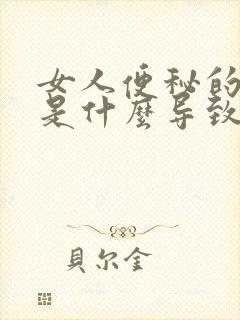 女人便秘的
是什麼导致
貝尔金